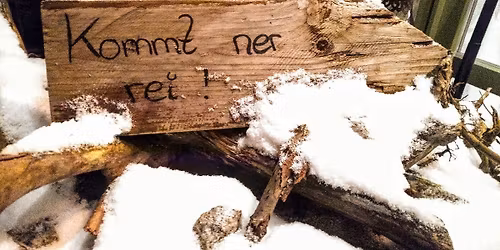 Kommt ner
rei !